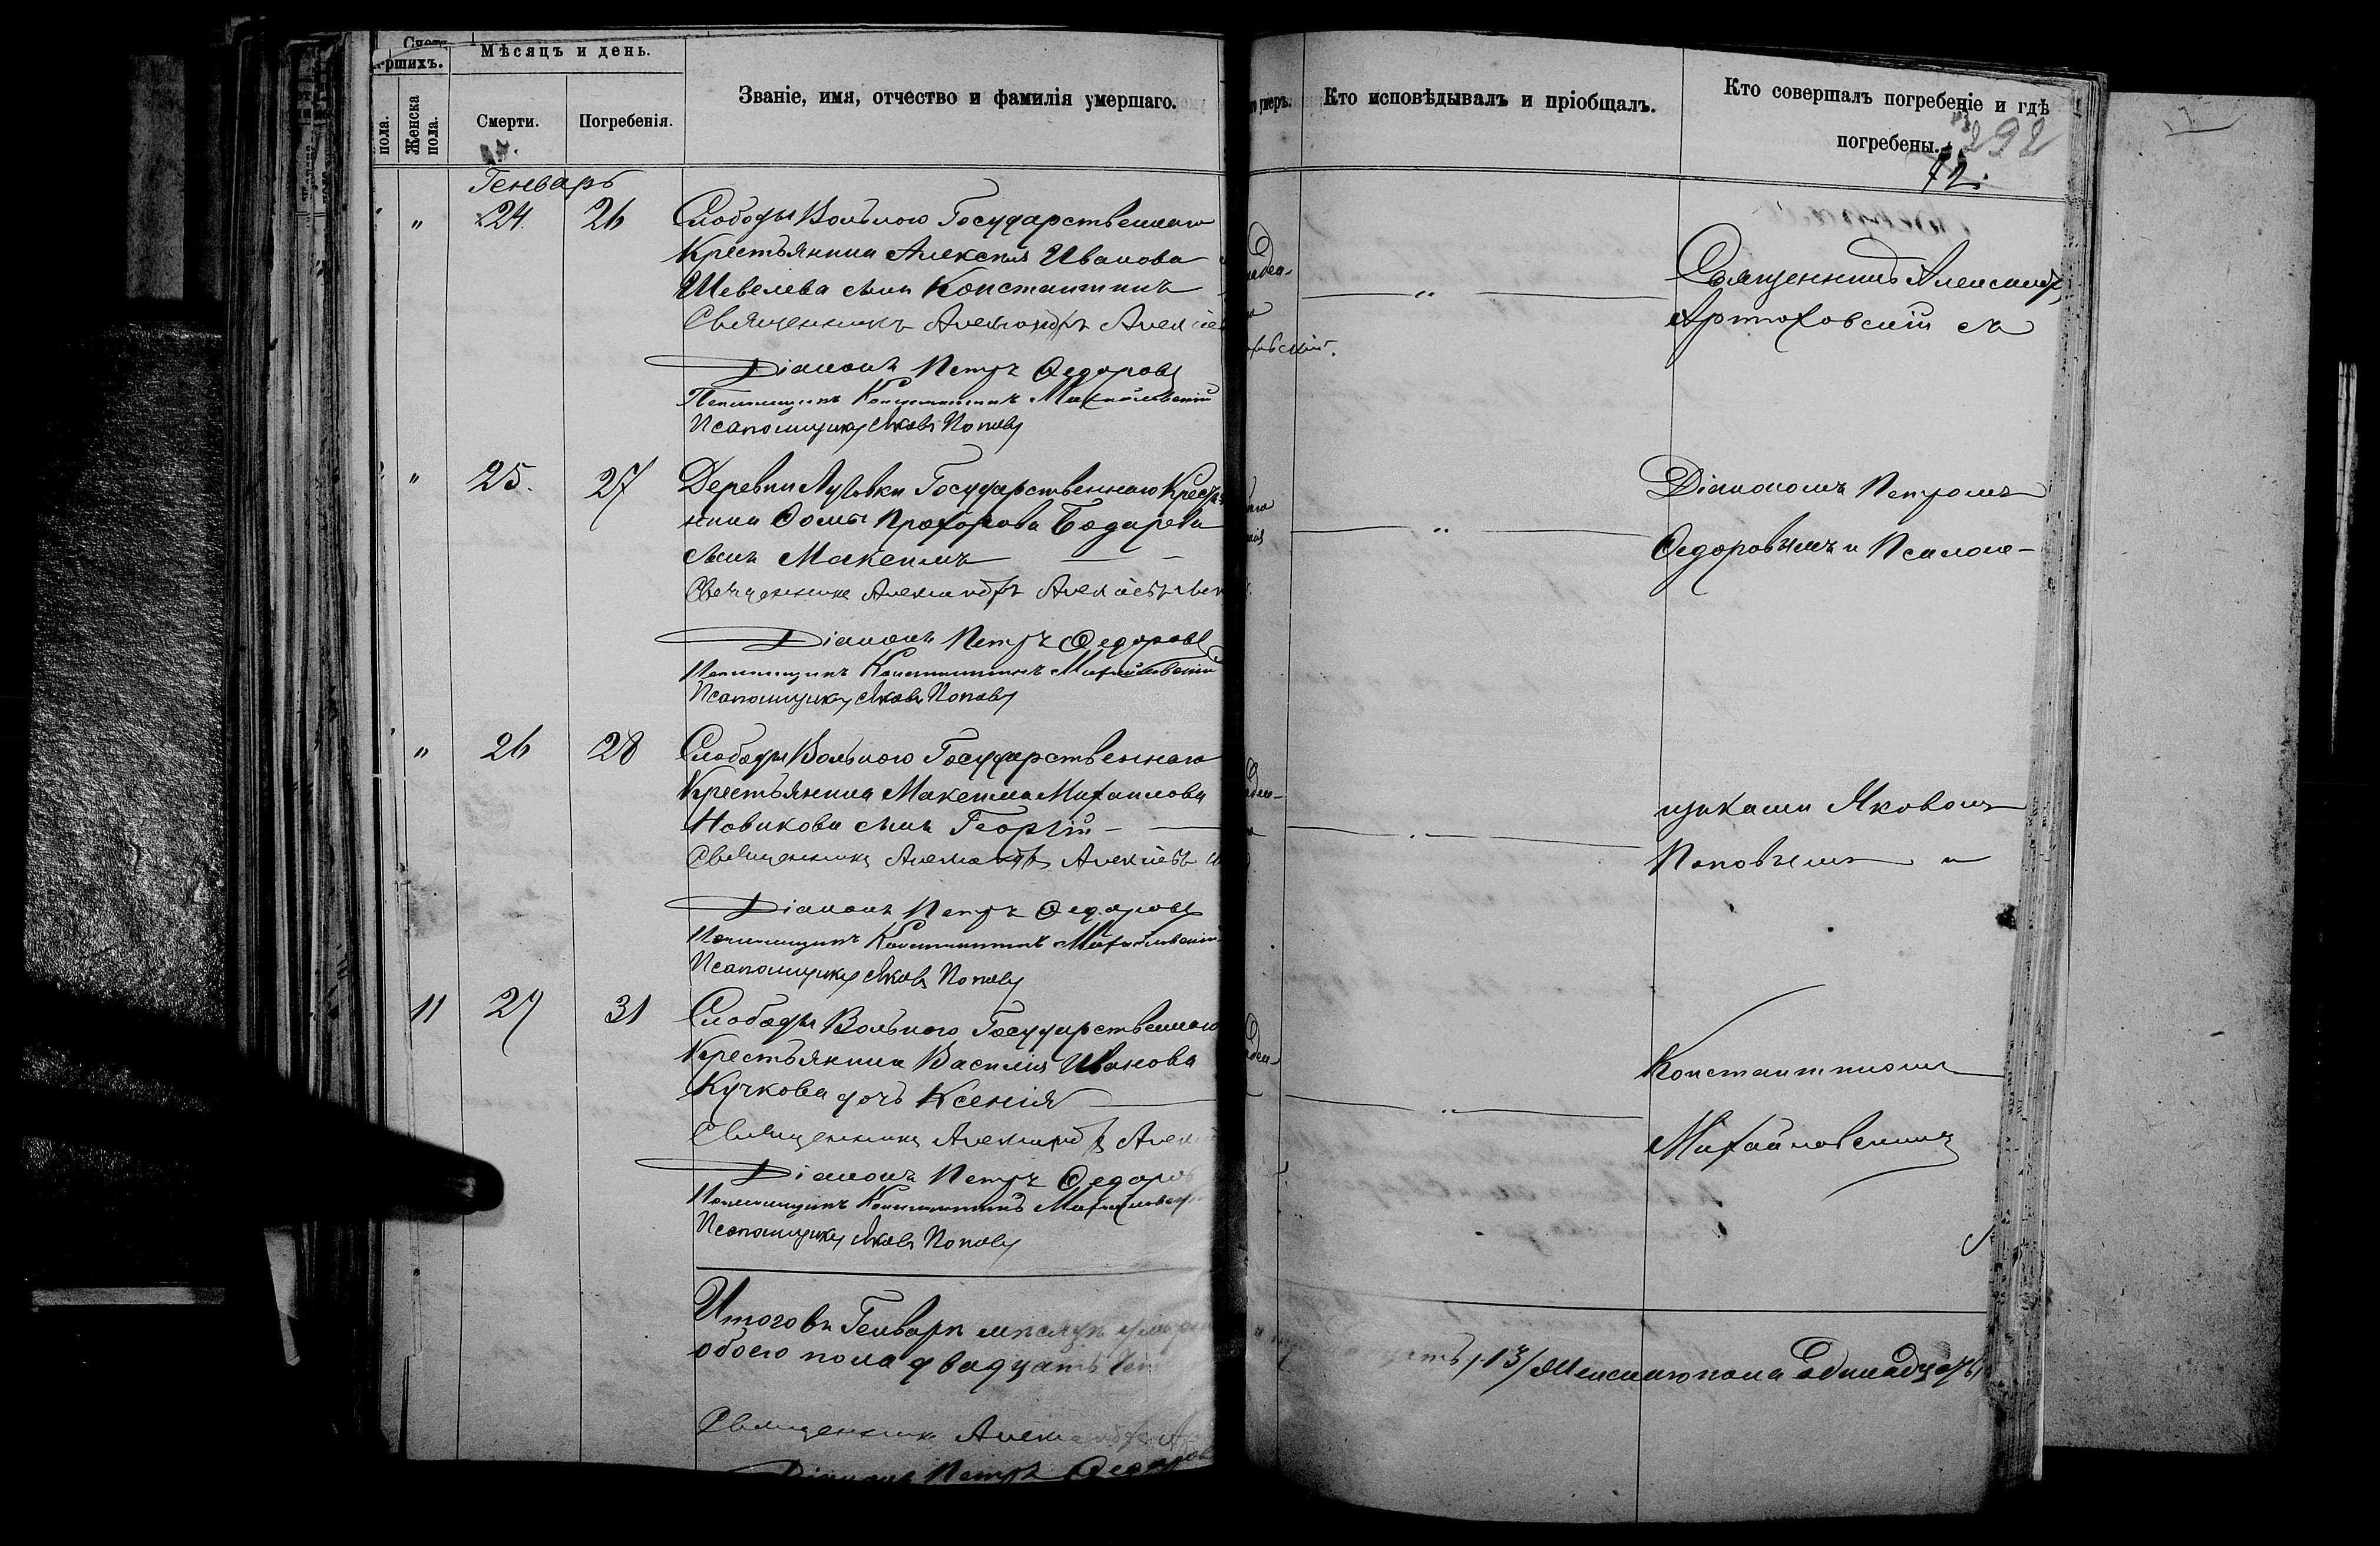 Счетъ
ршихъ.
Мѣсяцъ и день.
пола.
Женска пола.
Смерти.
Погребенія.
Званіе, имя, отчество и фамилія умершаго.
умеръ.
Кто исповѣдывалъ и пріобщалъ.
Кто совершалъ погребеніе и гдѣ
погребены.
292
72.
Генварь
" 24. 26 Слободы Вольного Государственнаго
Крестьянина Алексія Иванова
Шевелева сынъ Константинъ
Священникъ Александръ
Діаконъ Петръ Федоровъ
Псаломщикъ Константинъ Михайловскій
Псаломщикъ Яковъ Поповъ
" 25. 27 Деревни Государственнаго Крестья-
нина Фомы Прохорова
сынъ Максимъ
Священникъ Александръ
Діаконъ Петръ Федоровъ
Псаломщикъ Константинъ Михайловскій
Псаломщикъ Яковъ Поповъ
" 26 28 Слободы Вольного Государственнаго
Крестьянина Максима Михаилова
Новикова сынъ Георгій
Священникъ Александръ
Діаконъ Петръ Федоровъ
Псаломщикъ Константинъ Михайловскій
Псаломщикъ Яковъ Поповъ
11 29 31 Слободы Вольного Государственнаго
Крестьянина Василія Иванова
Кучкова дочь Ксенія
Священникъ Александръ
Діаконъ Петръ Федоровъ
Псаломщикъ Константинъ Михайловскій
Псаломщикъ Яковъ Поповъ
Итого въ Генварѣ мѣсяцѣ
обоего пола двадцать
Священникъ
Діаконъ Петръ Федоровъ
Священникъ Александръ
Артоховскій съ
Діакономъ Петромъ
Федоровымъ и Псалом-
щиками Яковомъ
Поповымъ и
Константиномъ
Михайловскимъ
/13/ Женскаго пола Одинадцать